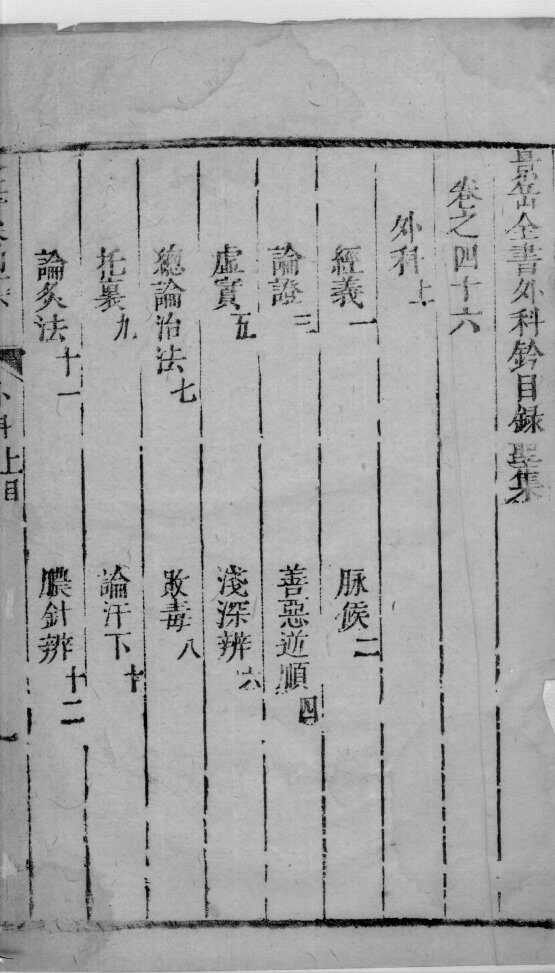 景岳全書外科鈐目錄 聖集
卷之四十六
外科上
經義一 脉候二
論證三 善惡逆順四
虛實五 淺深辨六
總論治法七 敗毒八
托裏九 論汗下十
論灸法十一 膿針辨十二
上目